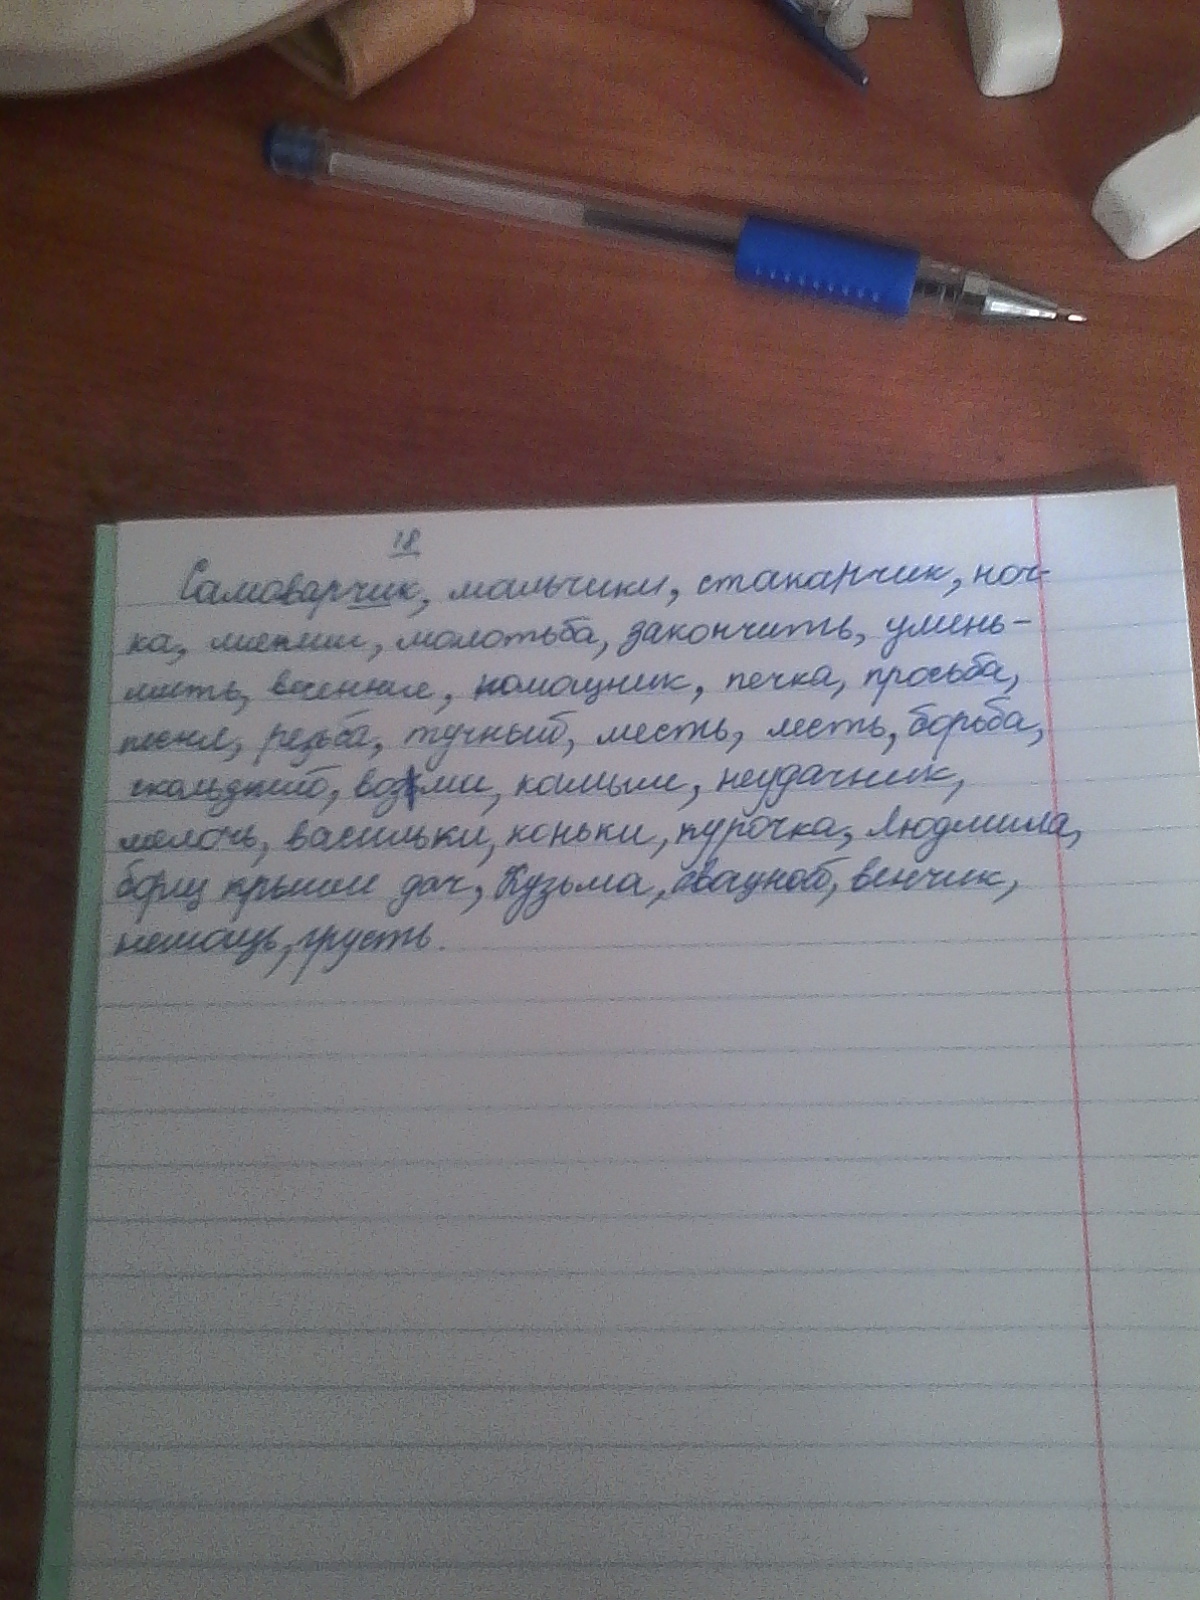 18
Самоварчик, мальчики, стаканчик, ноч-
ка, молотьба, закончить, умень-
шить, помощник, печка, просьба,
песня, резьба, тучный, месть, лесть, борьба,
возьми, камыш, неудачник,
мелочь, васильки, коньки, Людмила,
борщ крыши дач, Кузьма, венчик,
немощь, грусть.